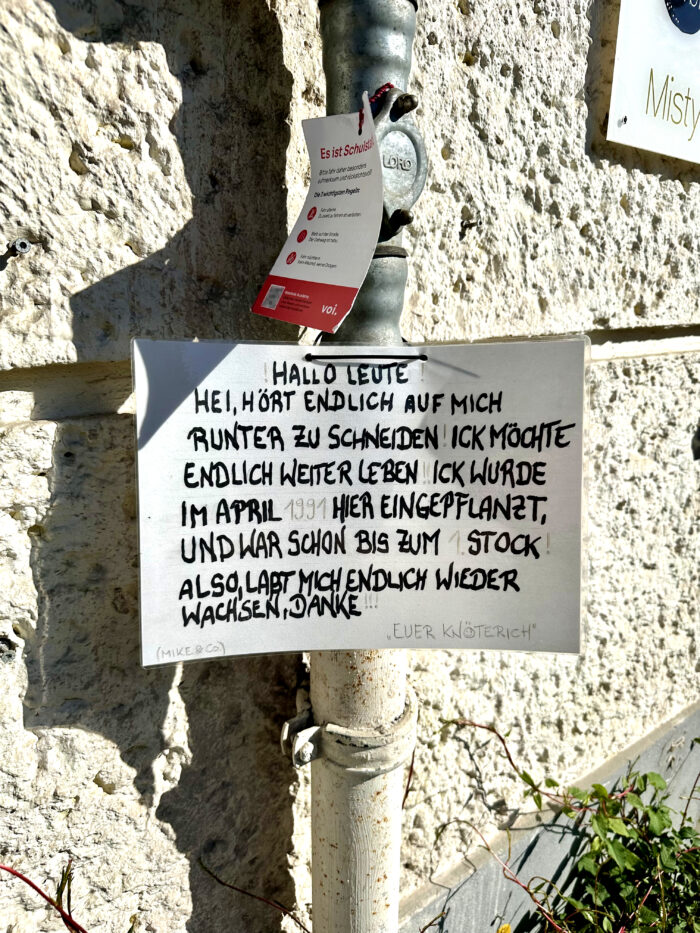 Mistv
LORO
Es ist Schulsta
Bitte fahr daher besonders
aufmerksam und rücksichtsvoll!
Die 3 wichtigsten Regeln:
voi.
! HALLO LEUTE !
HEI, HÖRT ENDLICH AUF MICH
RUNTER ZU SCHNEIDEN! ICK MÖCHTE
ENDLICH WEITER LEBEN!! ICK WURDE
IM APRIL 1991 HIER EINGEPFLANZT,
UND WAR SCHON BIS ZUM 1. STOCK!
ALSO, LAßT MICH ENDLICH WIEDER
WACHSEN, DANKE!!!
„EUER KNÖTERICH"
(MIKE & CO)